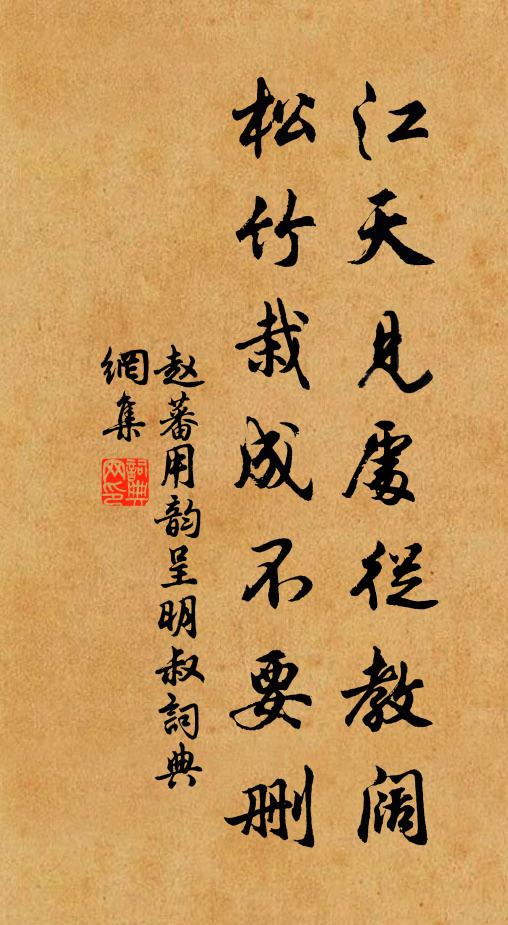 江天見處從教阔
松竹栽成不要删
赵蕃用韵呈明叔詞典
網集
詞典网印